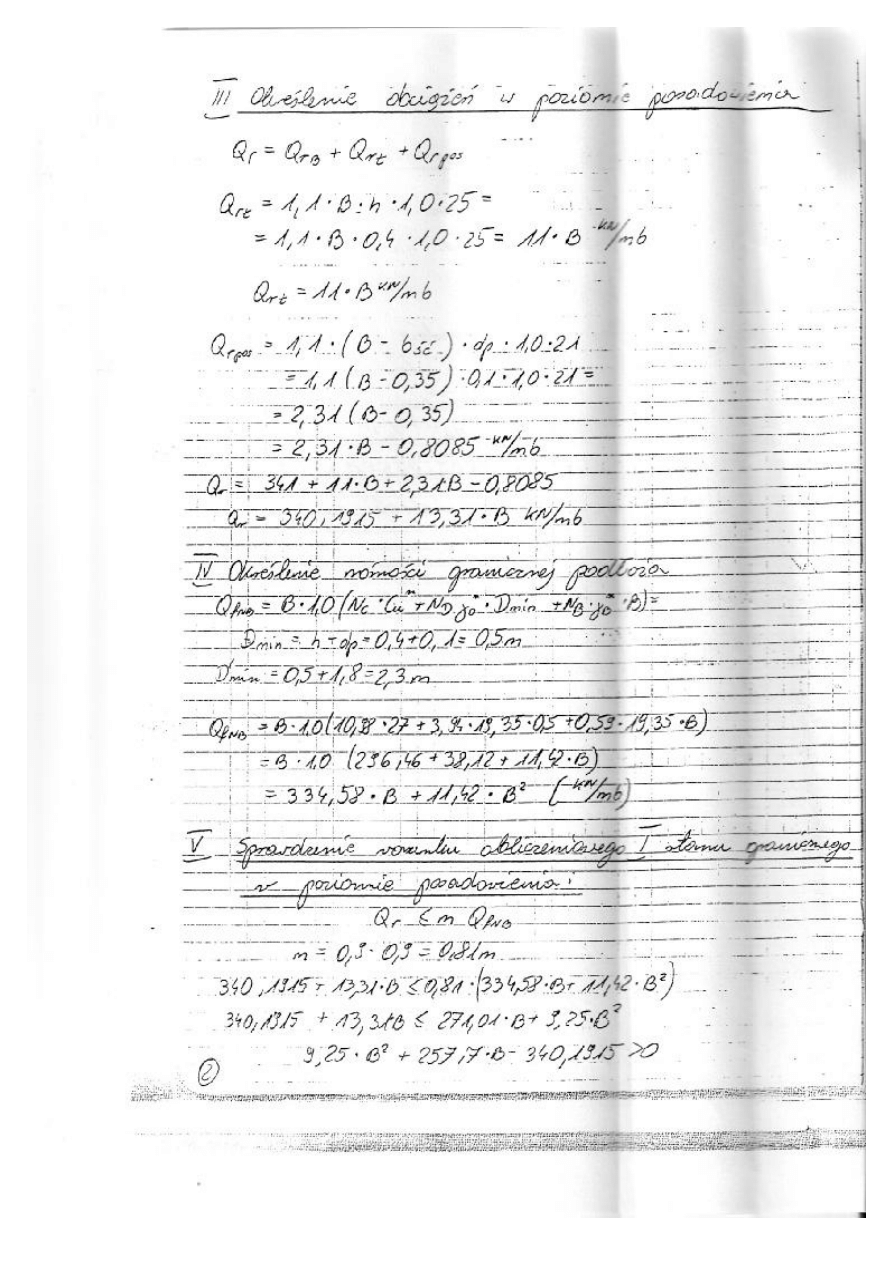 III Określenie obciążeń w poziomie posadowienia
Qr = QrB + Qrt + Qrpos
Qrt = 1,1 · B · h · 1,0 · 25 =
= 1,1 · B · 0,4 · 1,0 · 25 = 11 · B kN/mb
Qrt = 11 · B kN/mb
Qrpos = 1,1 · (B - bść) · dp · 1,0 · 21
= 1,1 (B - 0,35) · 0,1 · 1,0 · 21 =
= 2,31 (B - 0,35)
= 2,31 · B - 0,8085 kN/mb
Qr = 341 + 11 · B + 2,31B - 0,8085
Qr = 340,1915 + 13,31 · B kN/mb
IV Określenie nośności granicznej podłoża
QfNB = B · 1,0 (Nc · Cuⁿ + ND · γDⁿ · Dmin + NB · γBⁿ · B) =
Dmin = h + dp = 0,4 + 0,1 = 0,5 m
D'min = 0,5 + 1,8 = 2,3 m
QfNB = B · 1,0 (10,98 · 27 + 3,94 · 19,35 · 0,5 + 0,59 · 19,35 · B)
= B · 1,0 (296,46 + 38,12 + 11,42 · B)
= 334,58 · B + 11,42 · B² (kN/mb)
V Sprawdzenie warunku obliczeniowego I stanu granicznego
w poziomie posadowienia:
Qr ≤ m QfNB
m = 0,9 · 0,9 = 0,81m
340,1915 + 13,31 · B ≤ 0,81 · (334,58 · B + 11,42 · B²)
340,1915 + 13,31B ≤ 271,01 · B + 9,25 · B²
9,25 · B² + 257,7 · B - 340,1915 > 0
2